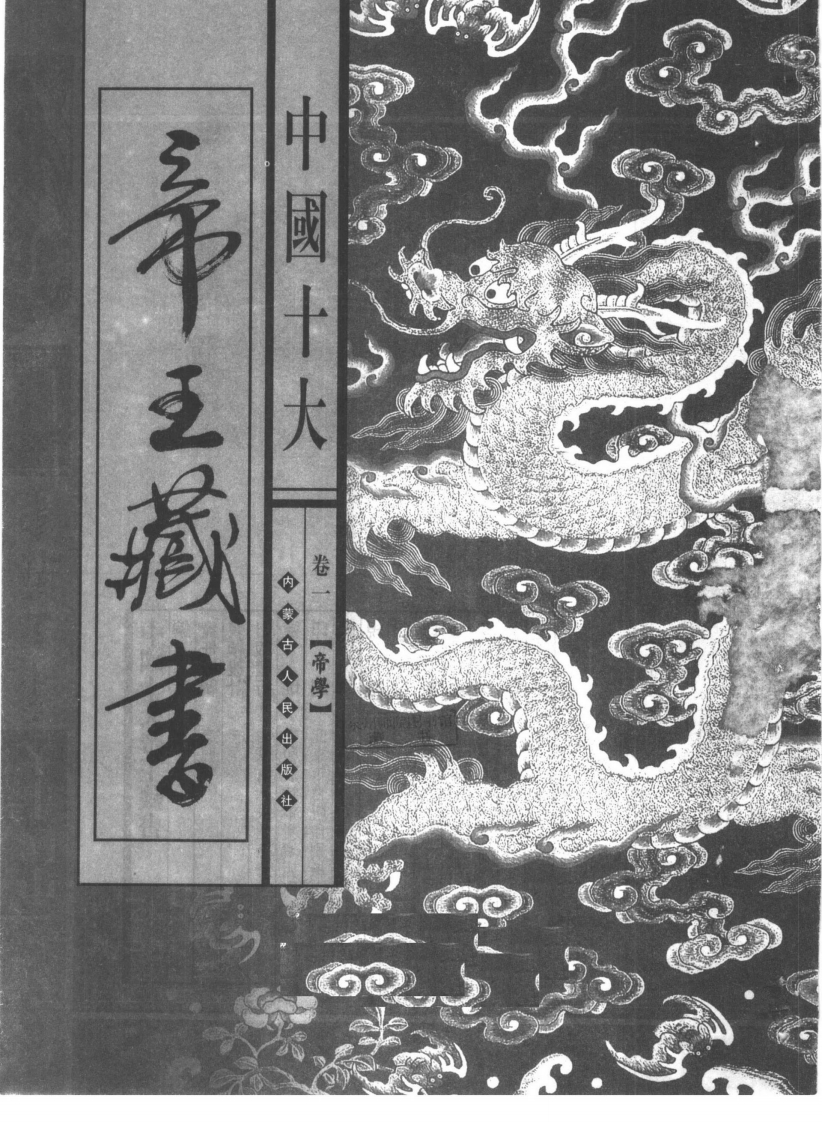 中國十大
帝王藏書
卷一【帝學】
内蒙古人民出版社